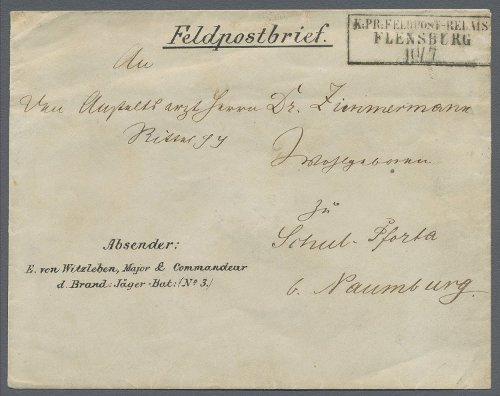 Feldpostbrief.
K:PR:FELDPOST-RELAIS
FLENSBURG
10/7
An
den Anstaltsarzt Herrn Dr. Zimmermann
Ritter pp
Wohlgeboren
zu
Schul-Pforta
b. Naumburg.
Absender:
E. von Witzleben, Major & Commandeur
d. Brand: Jäger-Bat: (No 3.)